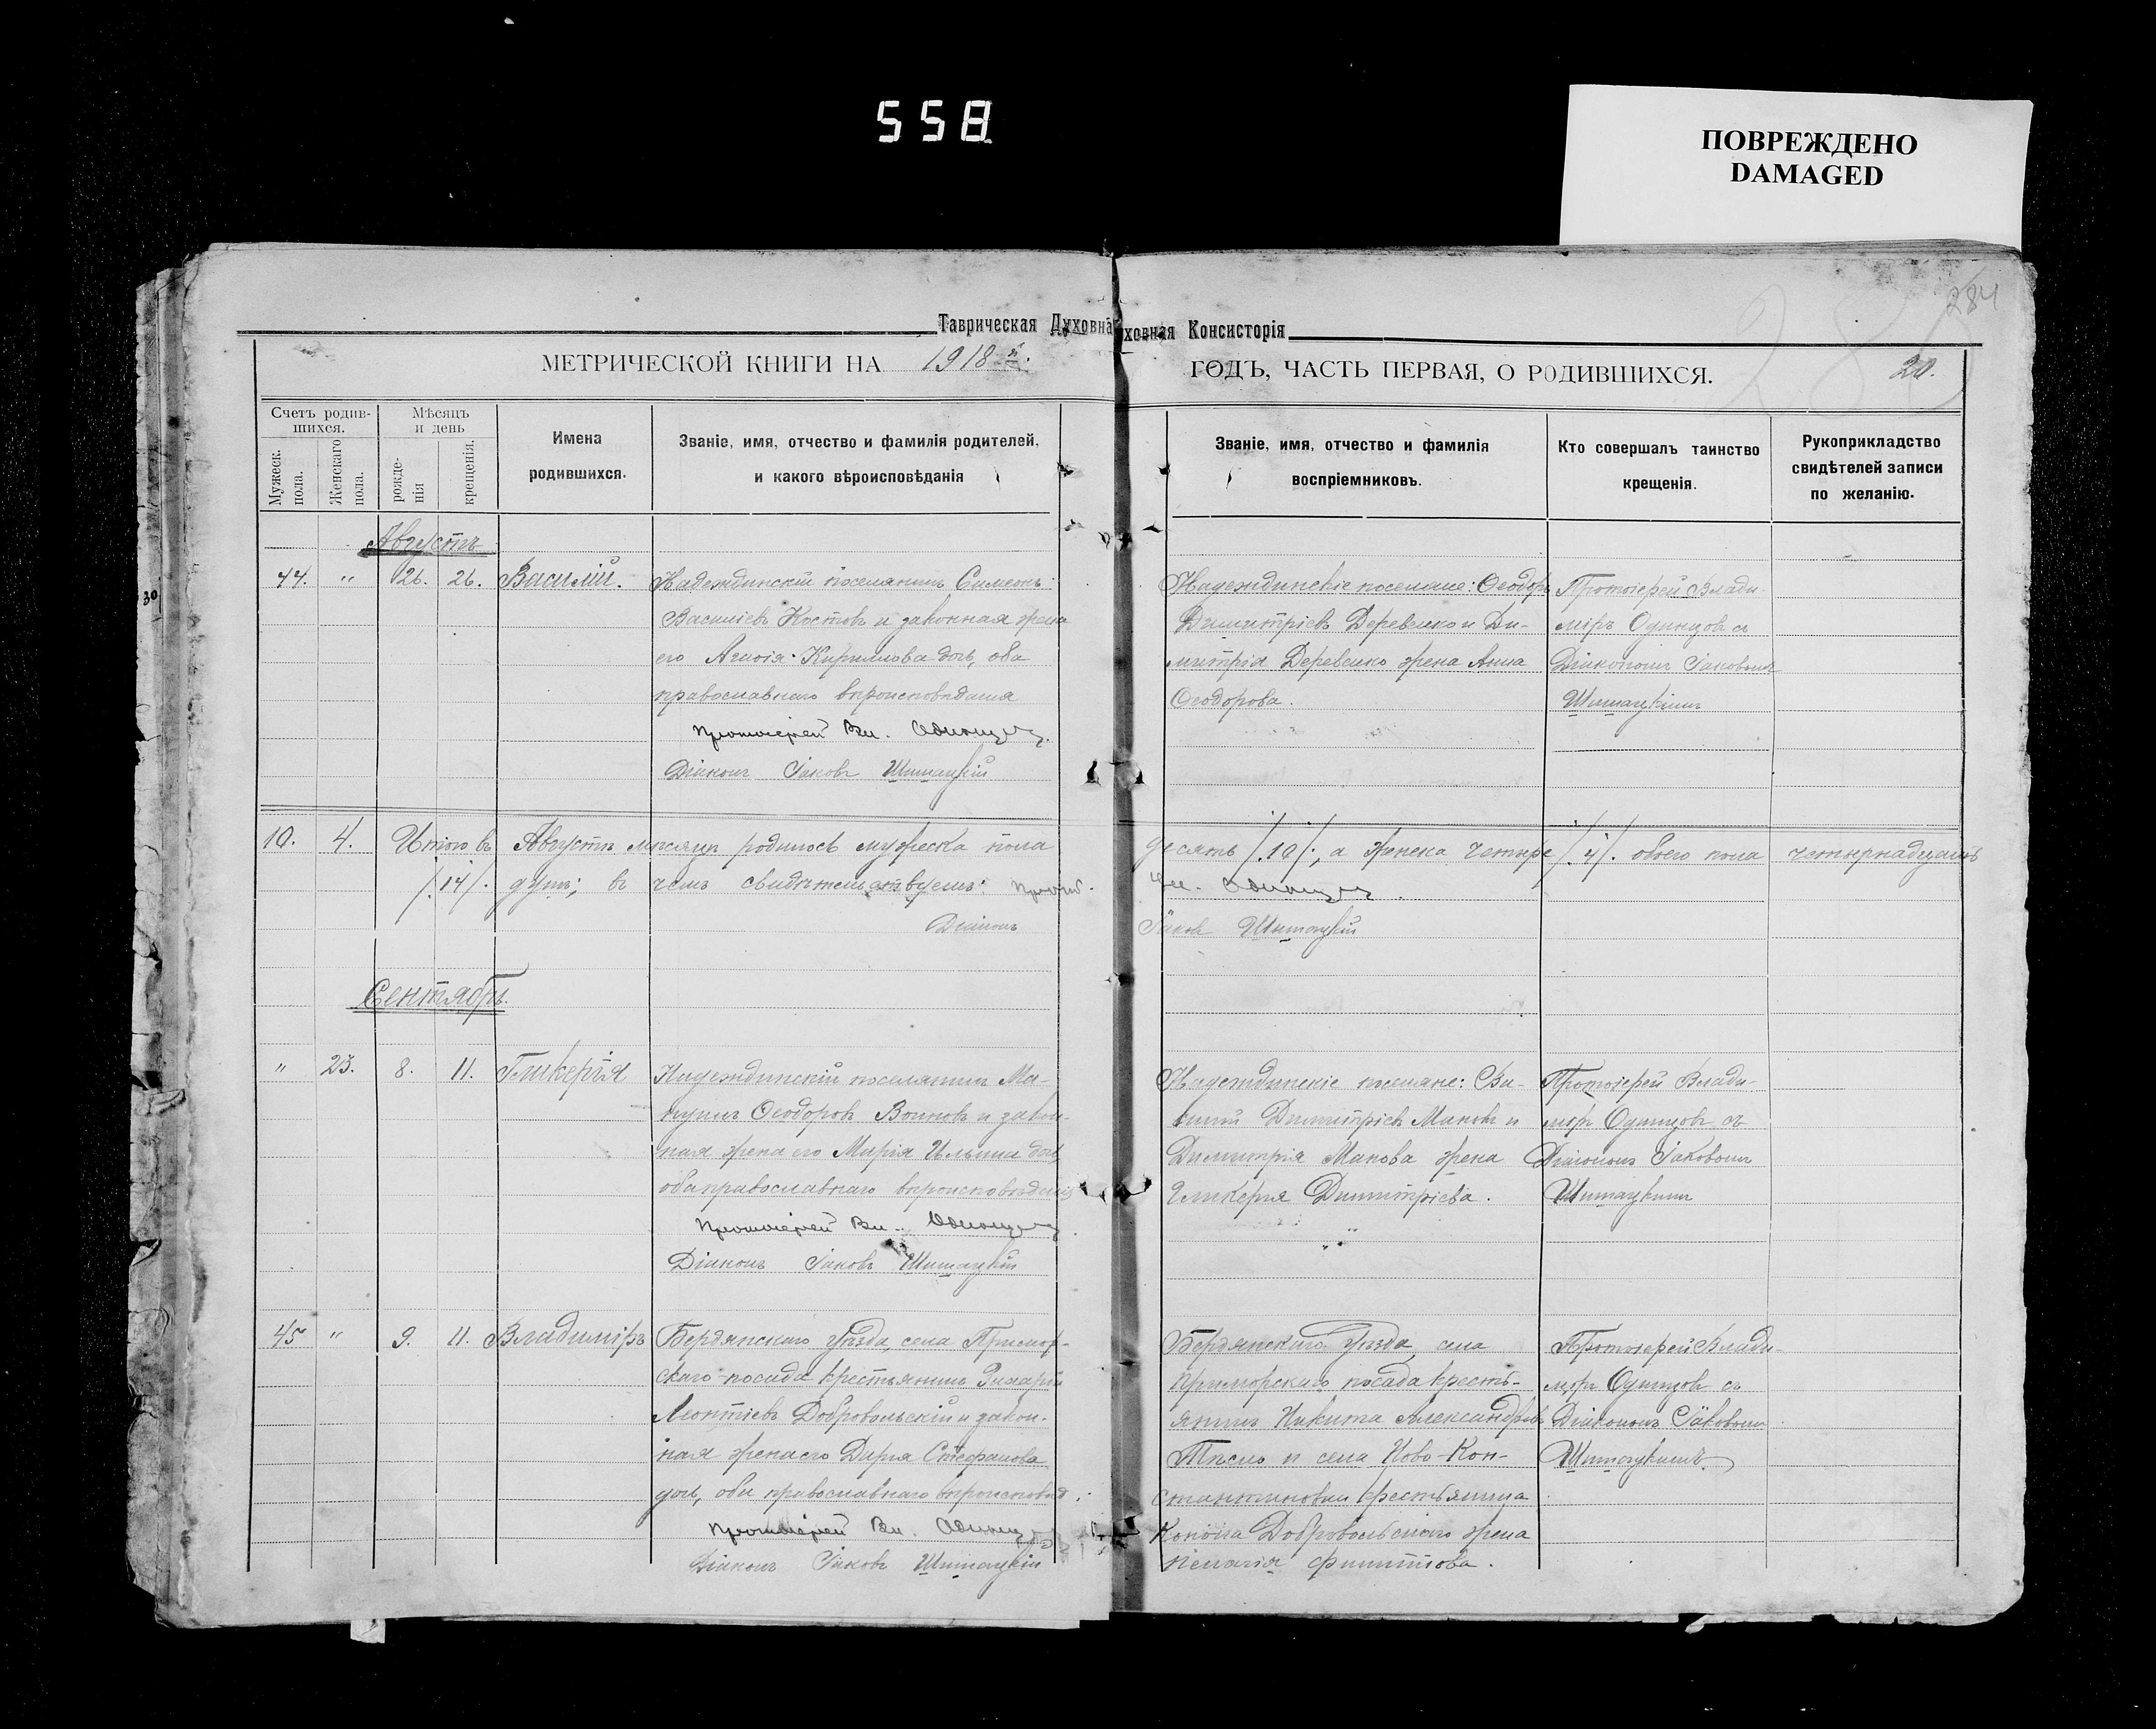 558
ПОВРЕЖДЕНО
DAMAGED
284
Таврическая Духовна
ховная Консисторія
МЕТРИЧЕСКОЙ КНИГИ НА 1918 й.
ГОДЪ, ЧАСТЬ ПЕРВАЯ, О РОДИВШИХСЯ.
20.
Счетъ родив-
шихся.
Мужеск. пола.
Женскаго пола.
Мѣсяцъ
и день
рожде-
нія
крещенія.
Имена
родившихся.
Званіе, имя, отчество и фамилія родителей,
и какого вѣроисповѣданія
Званіе, имя, отчество и фамилія
воспріемниковъ.
Кто совершалъ таинство
крещенія.
Рукоприкладство
свидѣтелей записи
по желанію.
Августъ
44. " 26. 26. Василій.
Надеждинскій поселянинъ Симеонъ
Василіевъ Костовъ и законная жена
его Кириллова дочь, оба
православнаго вѣроисповѣданія
Протоіерей Вл. Одинцовъ
Діаконъ Іаковъ Шишацкій
Надеждинскіе поселяне: Ѳеодоръ
Димитріевъ Деревенко и Ди-
митрія Деревенко жена Анна
Ѳеодорова.
Протоіерей Влади-
міръ Одинцовъ съ
Діакономъ Іаковомъ
Шишацкимъ
10. 4. Итого въ Августѣ мѣсяцѣ родилось мужеска пола десять /.10/., а женска четыре /.4/. обоего пола четырнадцать
/.14/. душъ; въ чемъ свидѣтельствуемъ: Протоі. Вл. Одинцовъ
Діаконъ Іаковъ Шишацкій
Сентябрь.
" 23. 8. 11. Гликерія
Надеждинскій поселянинъ
Ѳеодоровъ Воиновъ и закон-
ная жена его Марія Ильина дочь,
оба православнаго вѣроисповѣданія
Протоіерей Вл. Одинцовъ
Діаконъ Іаковъ Шишацкій
Надеждинскіе поселяне: Ва-
силій Димитріевъ Мановъ и
Димитрія Манова жена
Гликерія Димитріева.
Протоіерей Влади-
міръ Одинцовъ съ
Діакономъ Іаковомъ
Шишацкимъ
45 " 9. 11. Владиміръ
Бердянскаго уѣзда, села Примор-
скаго посада крестьянинъ
Леонтіевъ Добровольскій и закон-
ная жена его Дарія Стефанова
дочь, оба православнаго вѣроисповѣд.
Протоіерей Вл. Одинцовъ
Діаконъ Іаковъ Шишацкій
Бердянскаго уѣзда, села
Приморскаго посада кресть-
янинъ Никита Александровъ
и села Ново-Кон-
стантиновки крестьянина
Конона Добровольскаго жена
Пелагія Филиппова.
Протоіерей Влади-
міръ Одинцовъ съ
Діакономъ Іаковомъ
Шишацкимъ